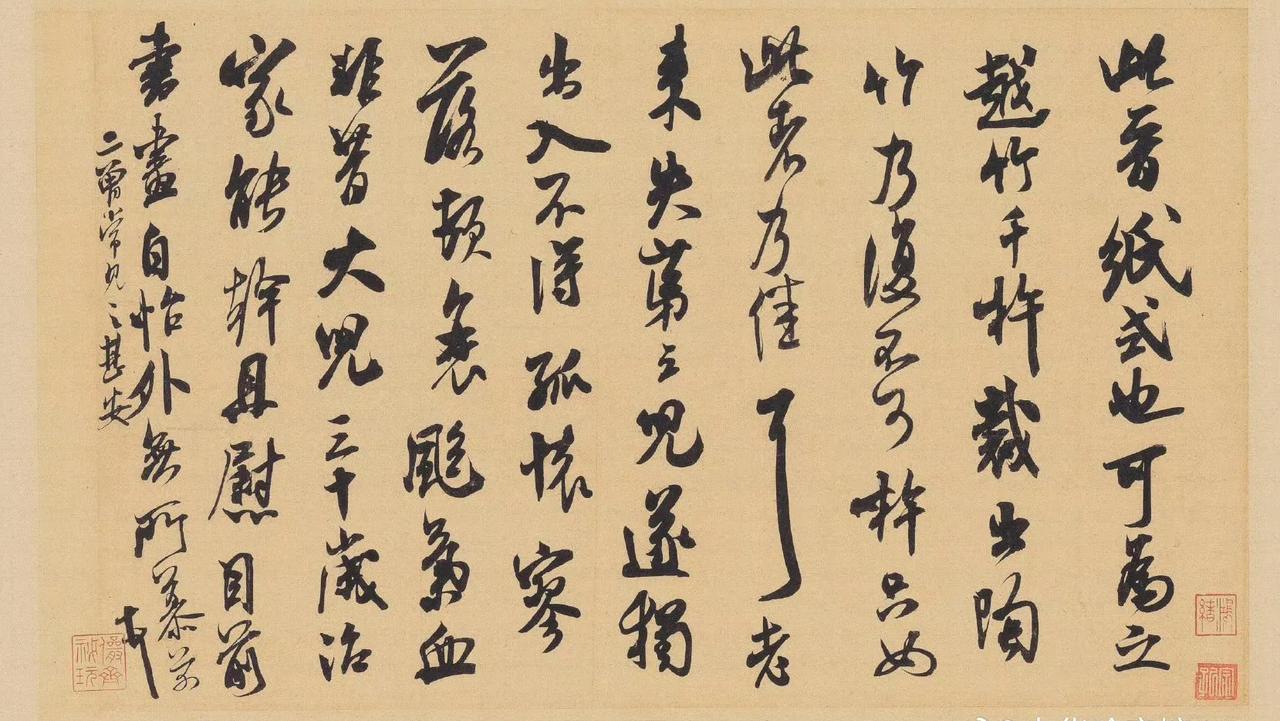 此晉紙式也可為之
越竹千杵裁出陶
竹乃復不可杵只如
此者乃佳耳老
来失第三兒遂獨
出入不得孤懷寥
落頓衰颯氣血
非昔大兒三十歲治
家能幹且慰目前
書畫自怡外無所慕
芾
二曾常見之甚安